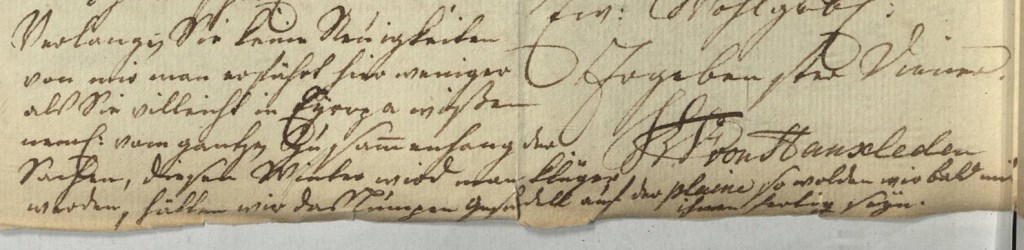 Verlangen Sie keine Neuigkeiten
von mir man erfährt hier weniger
als Sie villeicht in Europa wißen
nemł: vom gantzen Zusammenhang der
Sachen, diesen Winter wird man klüger
werden, hätten wir das Lumpen Gesindell auf der plaine so wolden wir bald mit
ihnen fertig seÿn.
Ew: Wohlgeb:
Ergebenster Diener
von Hanxleden